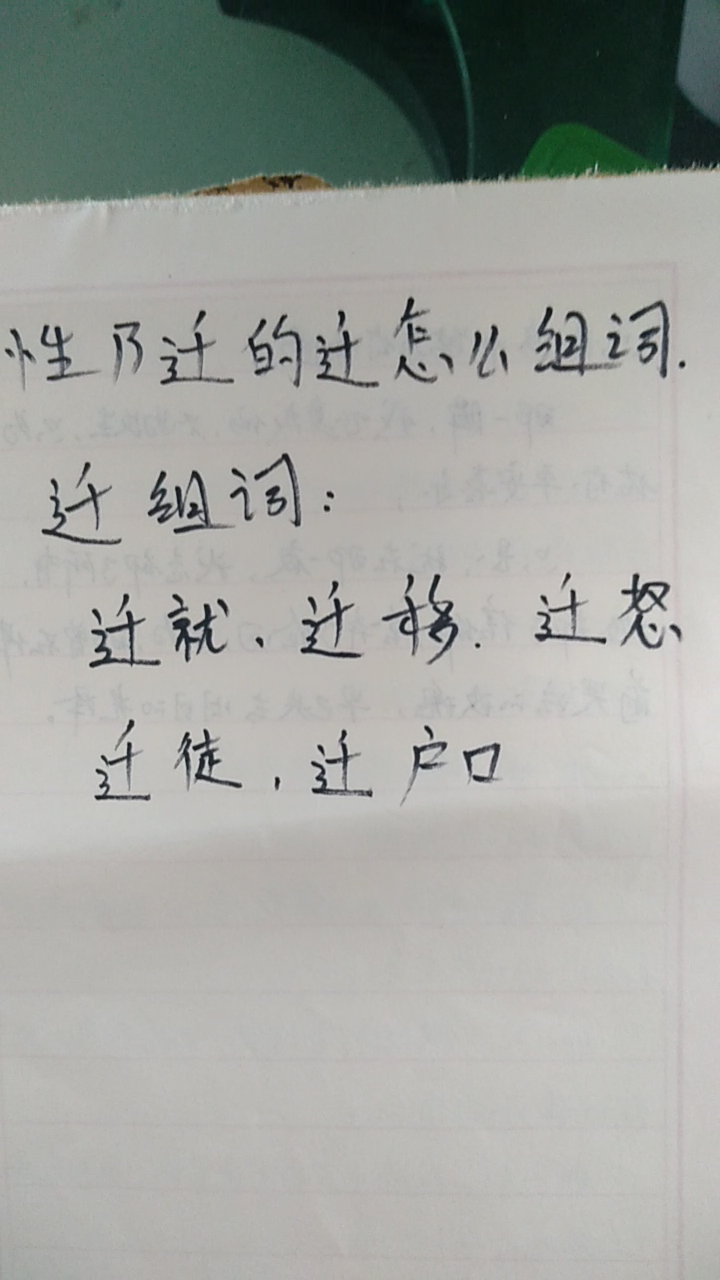 性乃迁的迁怎么组词.
迁组词:
迁就、迁移.迁怒
迁徒,迁户口